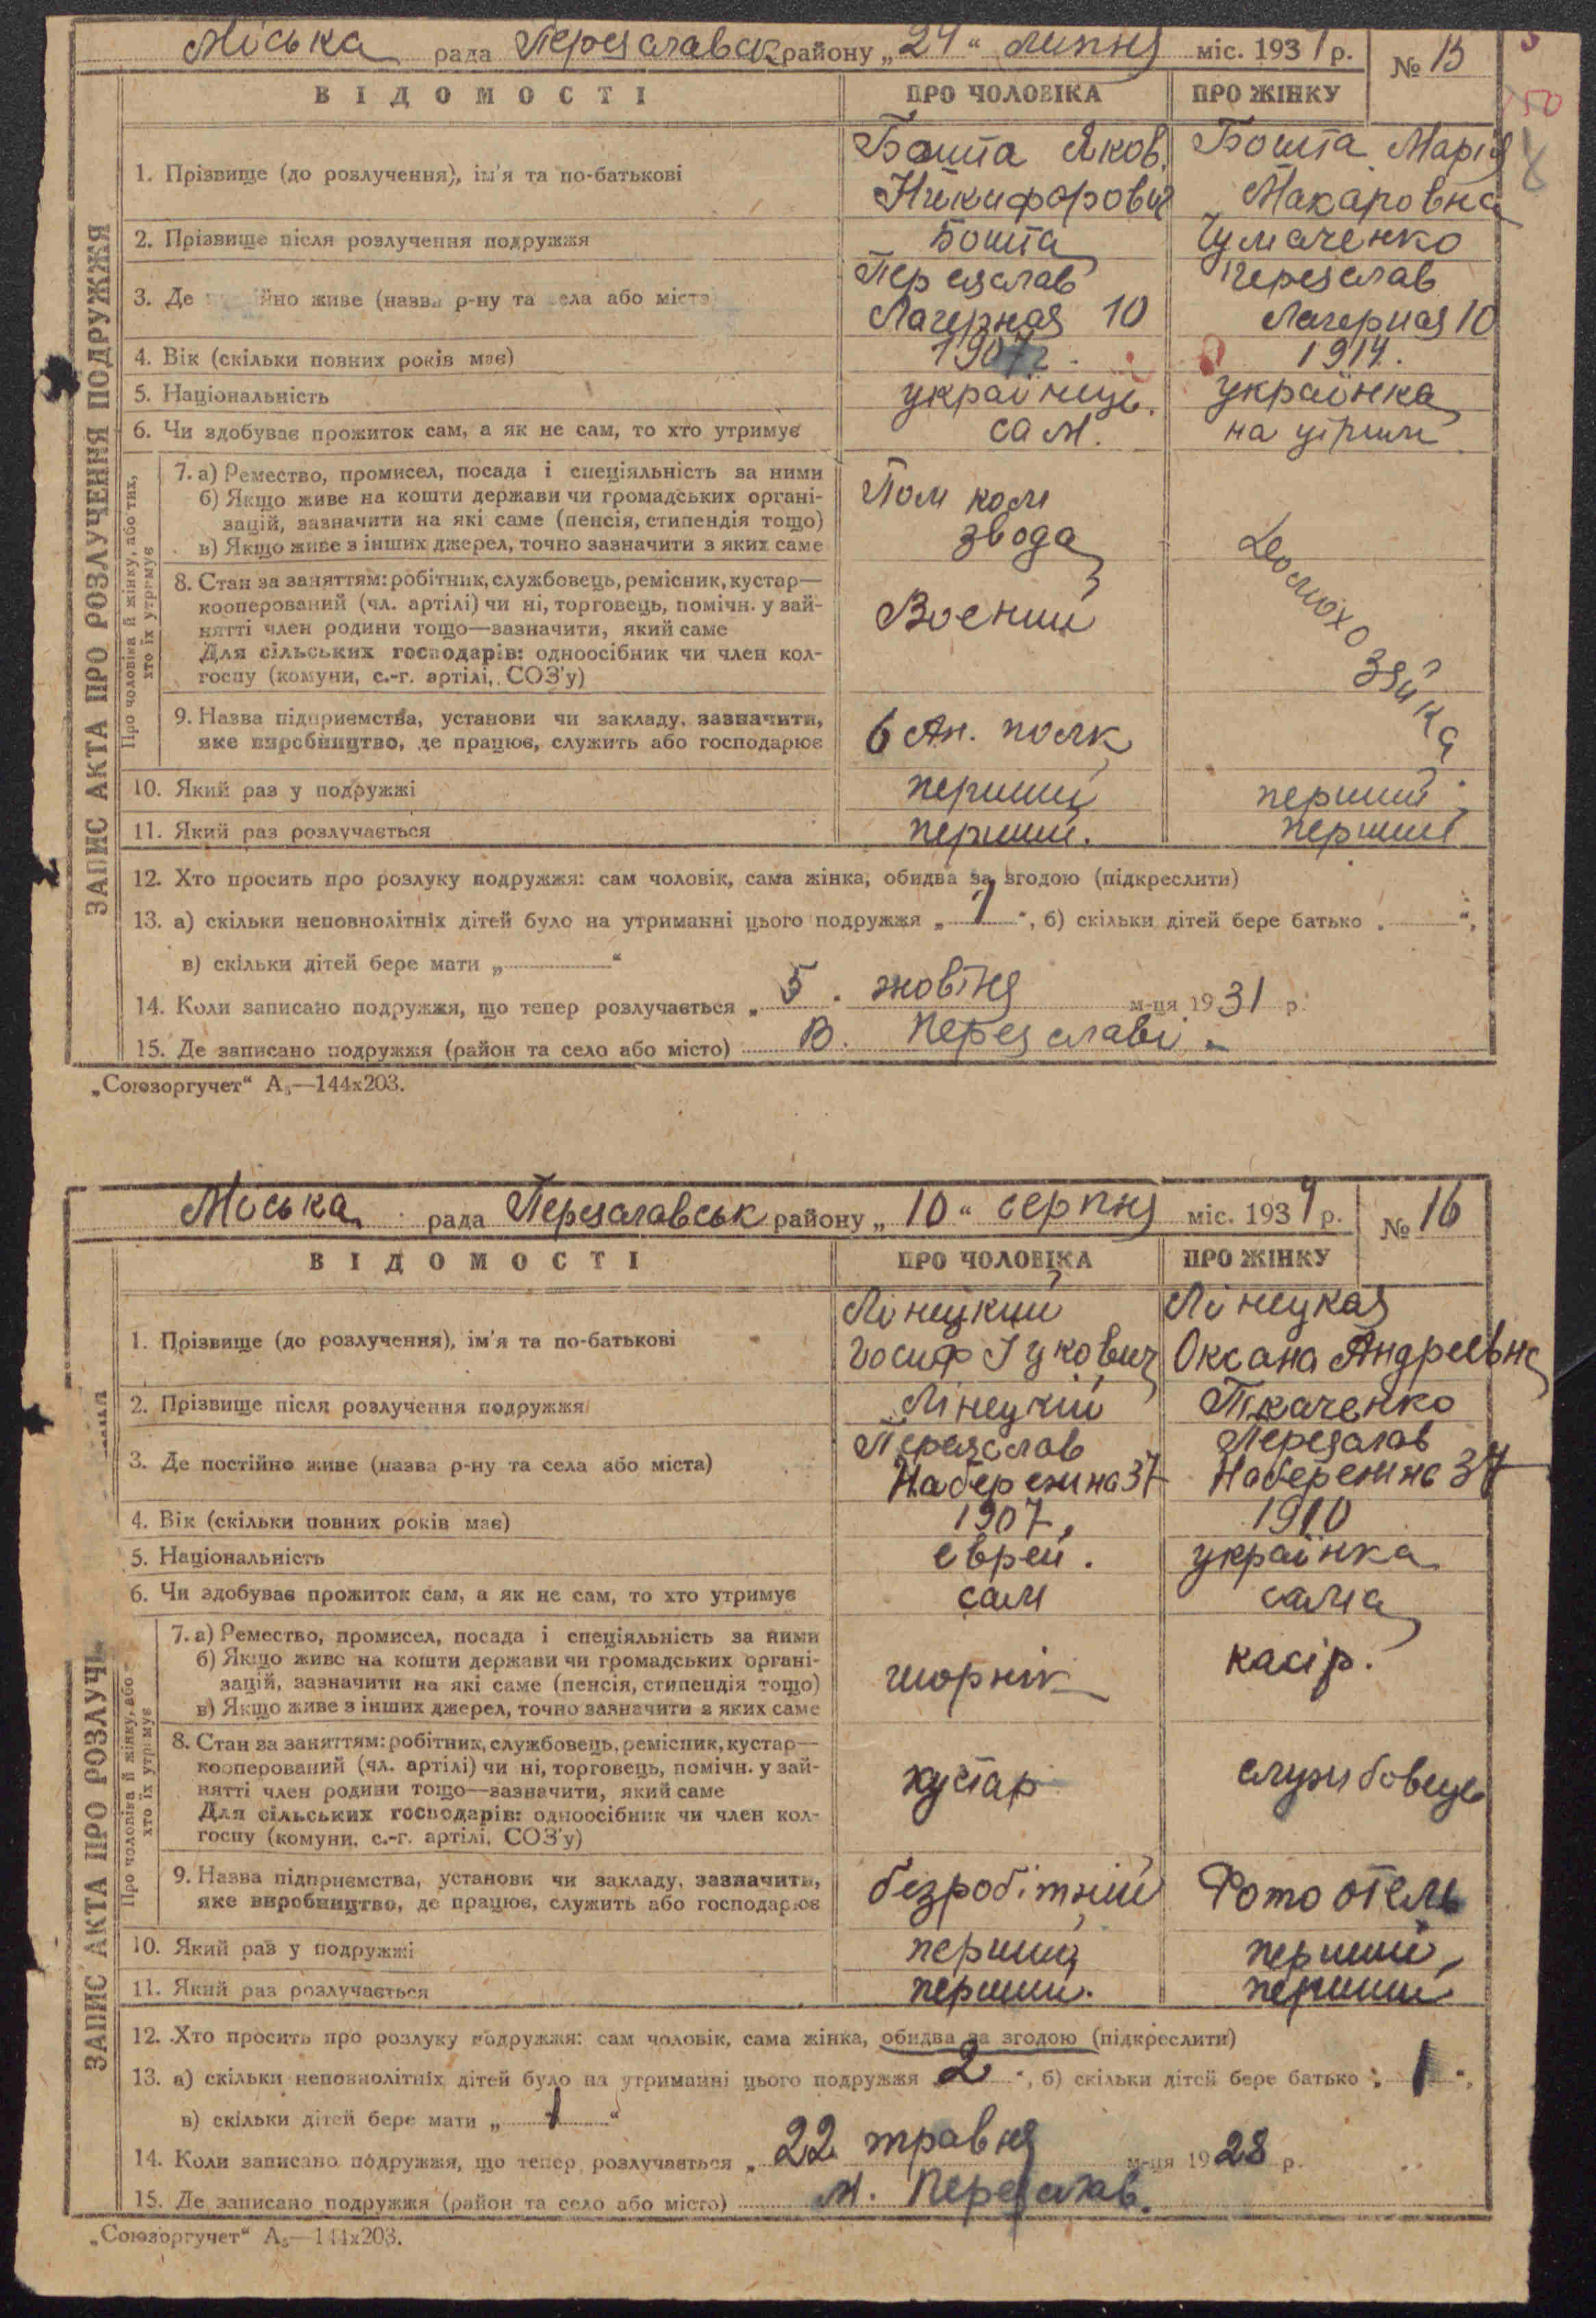 Міська рада Переяславськ району „24“ липня міс. 1934 р. № 15
150
ЗАПИС АКТА ПРО РОЗЛУЧЕННЯ ПОДРУЖЖЯ
ВІДОМОСТІ ПРО ЧОЛОВІКА ПРО ЖІНКУ
1. Прізвище (до розлучення), ім'я та по-батькові
Бошта Яков Никифорович
Бошта Марія Макаровна
2. Прізвище після розлучення подружжя Бошта Чумаченко
3. Де постійно живе (назва р-ну та села або міста)
Переяслав Лагерная 10
Переяслав Лагерная 10
4. Вік (скільки повних років має) 1907 1914.
5. Національність українець. українка
6. Чи здобуває прожиток сам, а як не сам, то хто утримує сам. на утрим
Про чоловіка й жінку, або тих, хто їх утримує
7. а) Ремество, промисел, посада і спеціяльність за ними
б) Якщо живе на кошти держави чи громадських організацій, зазначити на які саме (пенсія, стипендія тощо)
в) Якщо живе з інших джерел, точно зазначити з яких саме
Пом ком звода
Домохозяйка
8. Стан за заняттям: робітник, службовець, ремісник, кустар—
кооперований (чл. артілі) чи ні, торговець, помічн. у зай-
нятті член родини тощо—зазначити, який саме
Для сільських господарів: одноосібник чи член кол-
госпу (комуни, с.-г. артілі, СОЗ'у)
Воєний
9. Назва підприємства, установи чи закладу, зазначити,
яке виробництво, де працює, служить або господарює
6 Ан. полк
10. Який раз у подружжі перший перший
11. Який раз розлучається перший. перший
12. Хто просить про розлуку подружжя: сам чоловік, сама жінка, обидва за згодою (підкреслити)
13. а) скільки неповнолітніх дітей було на утриманні цього подружжя „1“, б) скільки дітей бере батько „ “,
в) скільки дітей бере мати „ “
14. Коли записано подружжя, що тепер розлучається „5. жовтня м-ця 1931 р.
15. Де записано подружжя (район та село або місто) В. Переяславі.
„Союзоргучет“ А₅—144х203.
Міська рада Переяславськ району „10“ серпня міс. 1934 р. № 16
ЗАПИС АКТА ПРО РОЗЛУЧЕ
ВІДОМОСТІ ПРО ЧОЛОВІКА ПРО ЖІНКУ
1. Прізвище (до розлучення), ім'я та по-батькові
Лінецкий Іосиф Іцкович
Лінецкая Оксана Андреевна
2. Прізвище після розлучення подружжя Лінецкий Ткаченко
3. Де постійно живе (назва р-ну та села або міста)
Переяслав Набережна 37
Переяслав Набережна 37
4. Вік (скільки повних років має) 1907. 1910
5. Національність еврей. українка
6. Чи здобуває прожиток сам, а як не сам, то хто утримує сам сама
Про чоловіка й жінку, або
хто їх утримує
7. а) Ремество, промисел, посада і спеціяльність за ними
б) Якщо живе на кошти держави чи громадських органі-
зацій, зазначити на які саме (пенсія, стипендія тощо)
в) Якщо живе з інших джерел, точно зазначити з яких саме
шорнік касір.
8. Стан за заняттям: робітник, службовець, ремісник, кустар—
кооперований (чл. артілі) чи ні, торговець, помічн. у зай-
нятті член родини тощо—зазначити, який саме
Для сільських господарів: одноосібник чи член кол-
госпу (комуни, с.-г. артілі, СОЗ'у)
кустар службовець
9. Назва підприємства, установи чи закладу, зазначити,
яке виробництво, де працює, служить або господарює
безробітний Фото отель
10. Який раз у подружжі перший перший,
11. Який раз розлучається перший. перший
12. Хто просить про розлуку подружжя: сам чоловік, сама жінка, обидва за згодою (підкреслити)
13. а) скільки неповнолітніх дітей було на утриманні цього подружжя „2“, б) скільки дітей бере батько „1“,
в) скільки дітей бере мати „1“
14. Коли записано подружжя, що тепер розлучається „22 травня м-ця 1928 р.
15. Де записано подружжя (район та село або місто) м. Переяслав.
„Союзоргучет“ А₅—144х203.